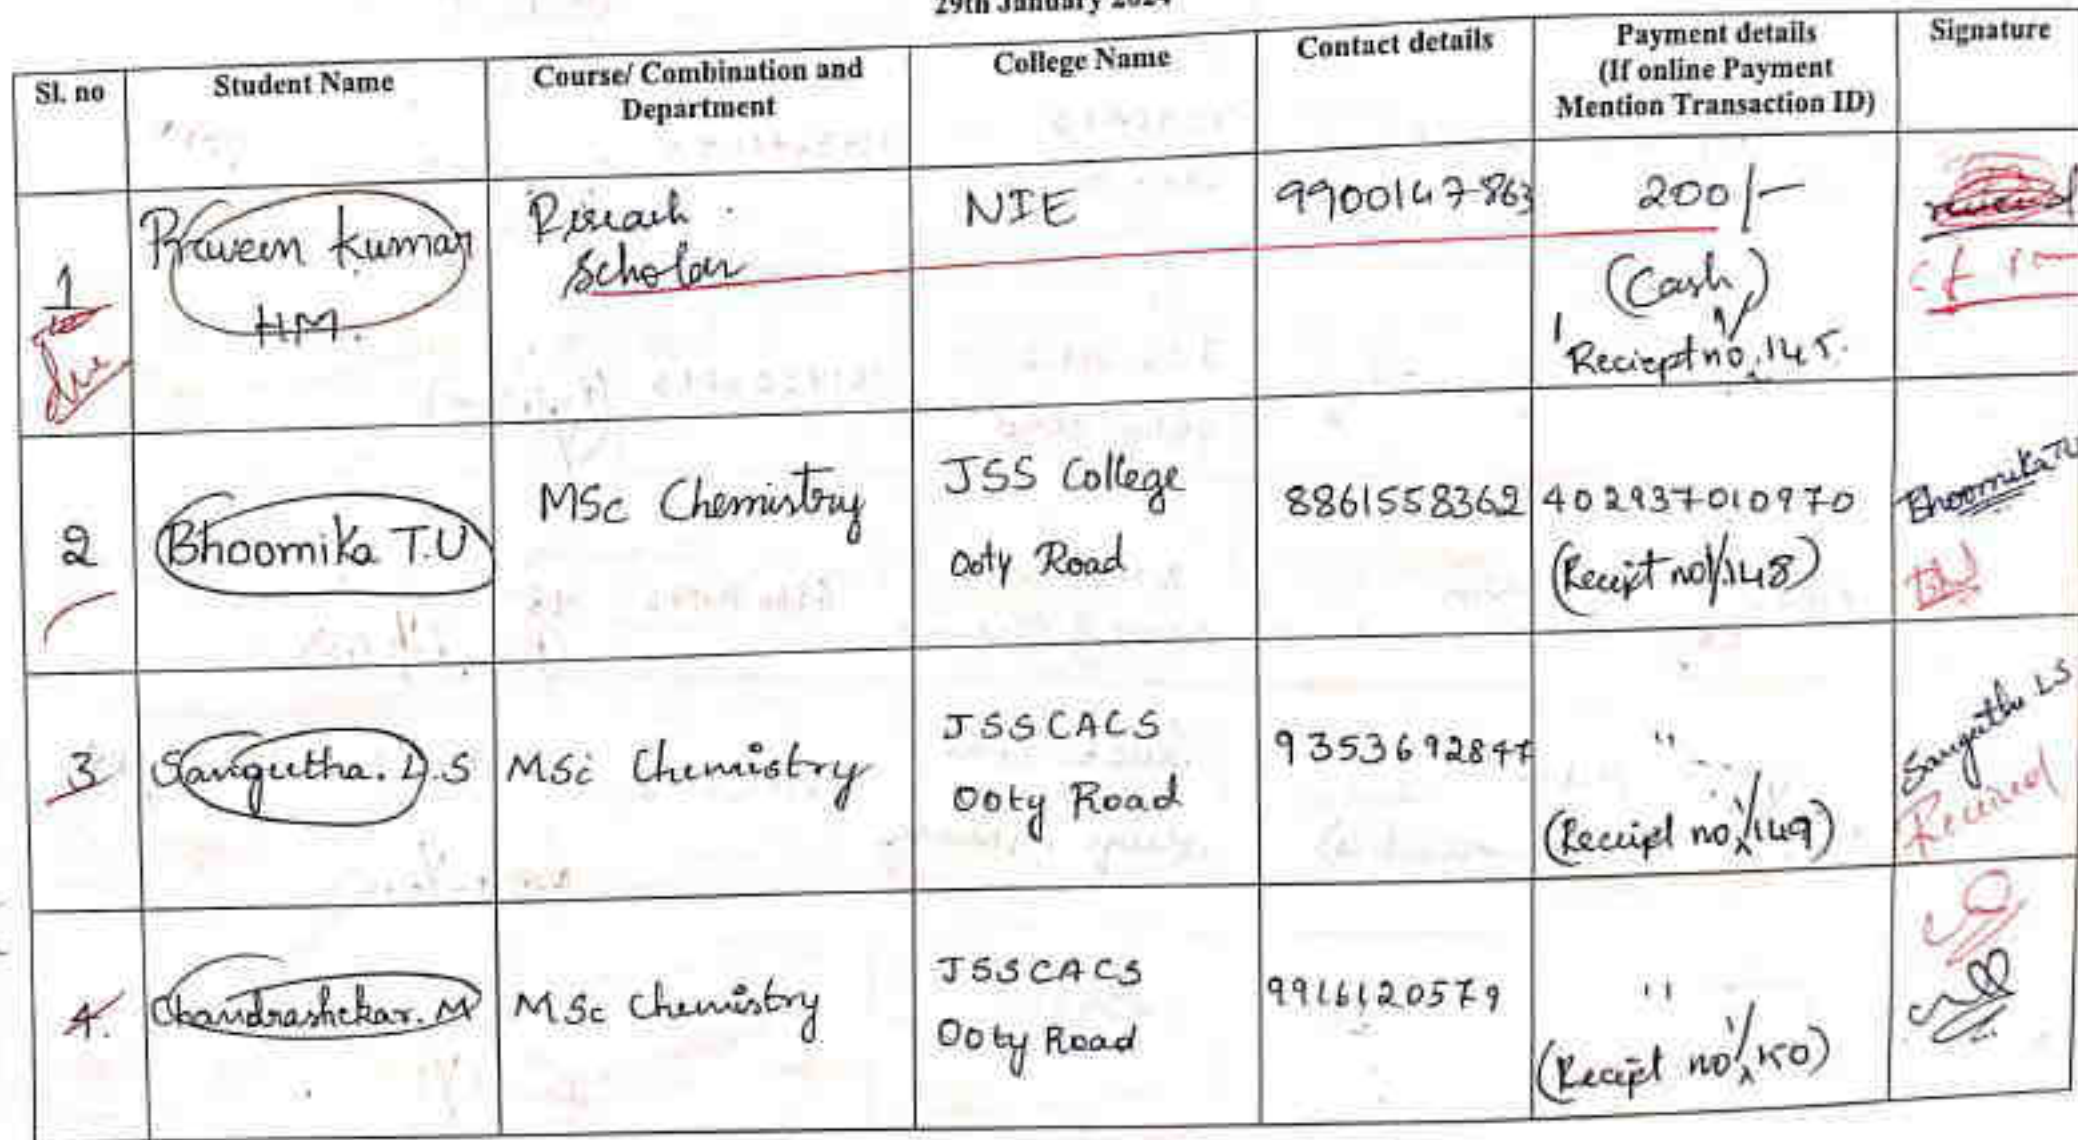 29th January 2024
Sl. no
Student Name
Course/ Combination and
Department
College Name
Contact details
Payment details
(If online Payment
Mention Transaction ID)
Signature
1
Praveen Kumar
H.M.
Scholar
NIE
9900147863
200/-
(Cash)
Reciept no 1/145.
2
Bhoomika T.U
MSc Chemistry
JSS College
Ooty Road
8861558362
402937010970
(Receipt no 1/148)
Bhoomika TU
3
Sangutha. L.S
MSc Chemistry
JSSCACS
Ooty Road
9353692847
"
(Receipt no 1/149)
Sangutha LS
Received
4.
Chandrashekar. M
MSc Chemistry
JSSCACS
Ooty Road
9916120579
"
(Receipt no 1/150)